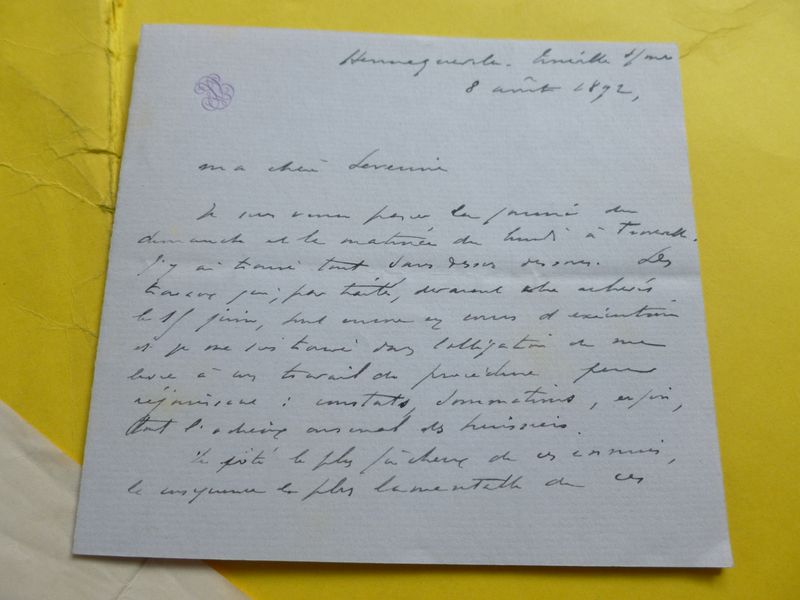 Hennequeville. Trouville s/mer
8 août 1892,
ma chère
Je suis venu passer la journée du
dimanche et la matinée du lundi à Trouville.
J'y ai trouvé tout sens dessus dessous. Les
travaux qui, par traité, devaient être achevés
le 15 juin, sont encore en cours d'exécution
et je me suis trouvé dans l'obligation de me
livrer à un travail de procédure peu
réjouissant : constats, sommations, enfin,
tout l'odieux arsenal des huissiers.
Le côté le plus fâcheux de ces ennuis,
la conséquence la plus lamentable de ces